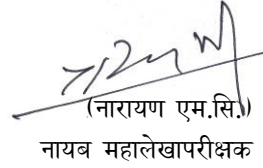 (नारायण एम.सि.)
नायब महालेखापरीक्षक